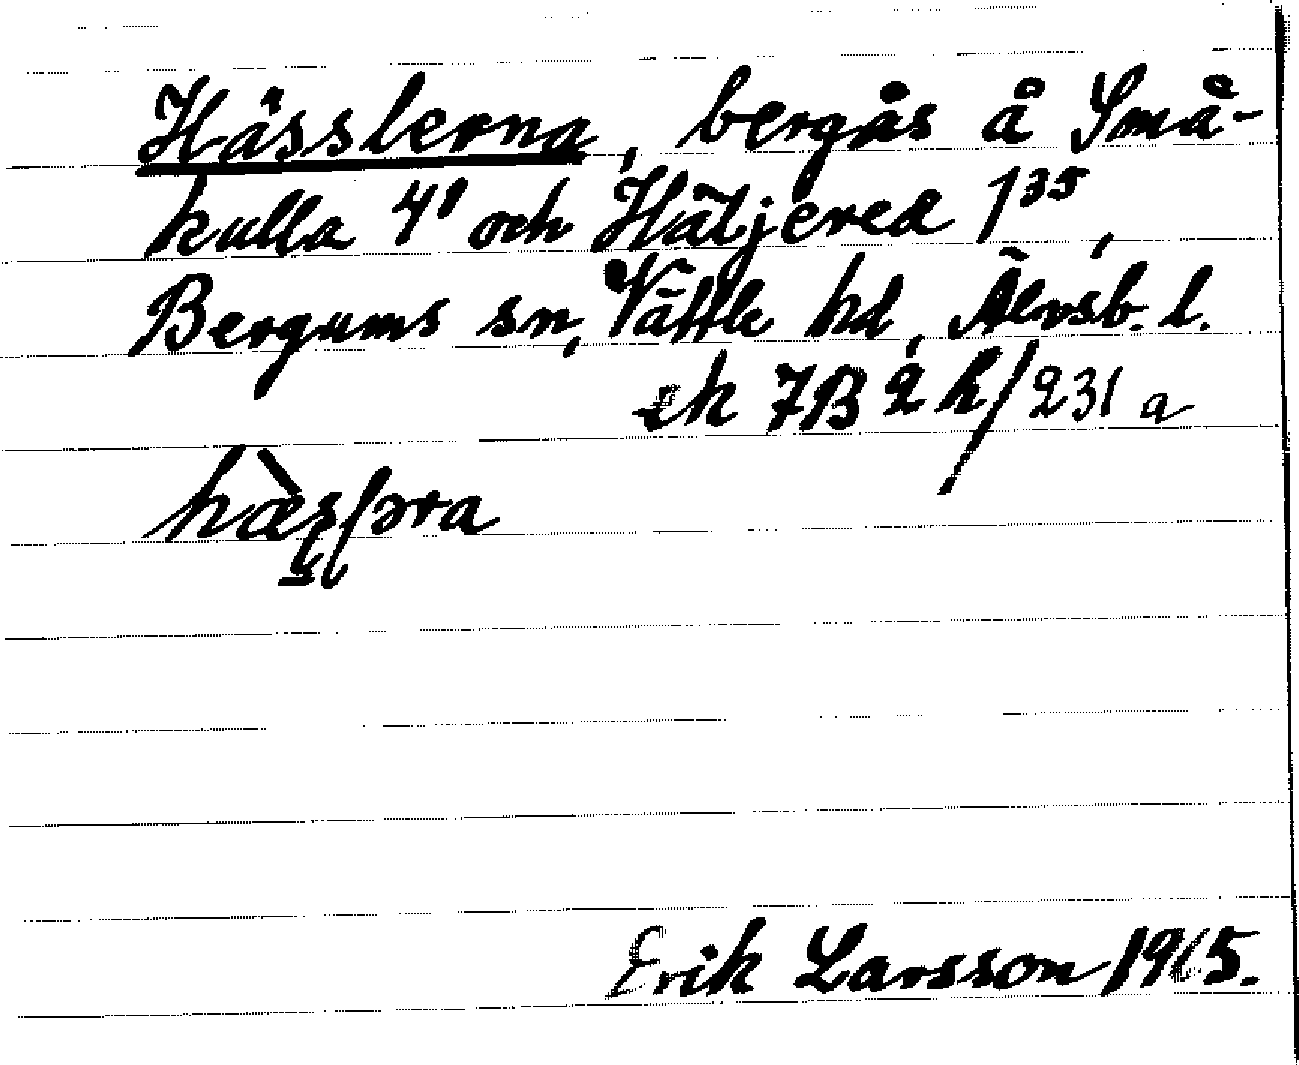 Hässlerna, bergås å Små-
kulla 4¹ och Häljered 1³⁵,
Bergums sn, Vättle hd, Älvsb. l.
ek 7B 2 h/231 a
Erik Larsson 1965.